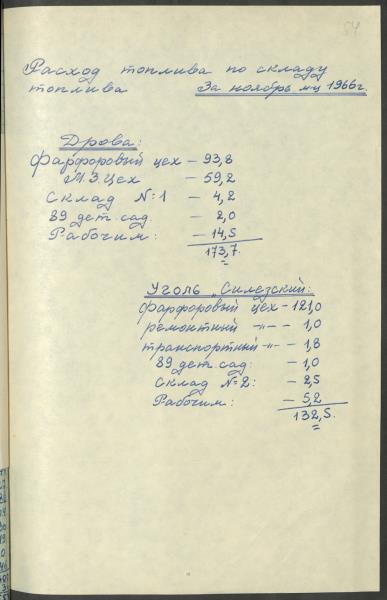 54
Расход топлива по складу
топлива За ноябрь м-ц 1966г.
Дрова:
Фарфоровый цех – 93,8
М.З. Цех – 59,2
Склад №1 – 4,2
89 дет. сад. – 2,0
Рабочим: – 14,5
173,7.
Уголь "Силезский:
Фарфоровый цех – 121,0
ремонтный –"– – 1,0
транспортный –"– – 1,8
89 дет. сад: – 1,0
Склад №2: – 2,5
Рабочим: – 5,2
132,5.